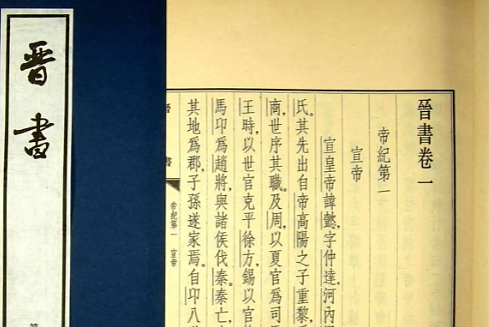 晉書
晉書卷一
帝紀第一
宣帝
宣皇帝諱懿，字仲達，河內
氏。其先出自帝高陽之子重黎，
商，世序其職。及周，以夏官爲司
王時，以世官克平徐方，錫以官
馬卬爲趙將，與諸侯伐秦。秦亡，
其地爲郡，子孫遂家焉。自卬八
書
帝紀第一 宣帝